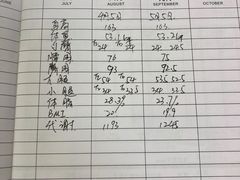 JULY AUGUST SEPTEMBER OCTOBER
4月5日 5月5日
身高 163 163
体重 53.1kg 53.2kg
臂 左24 右24 24 24.5
腰围 76 75
臀围 93 92.5
大腿 左54 右54 53.5 52.5
小腿 左34 右33.5 34 33.5
体脂 28.3% 23.7%
BMI 20 19.9
代谢 1193 1245